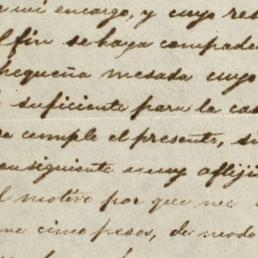 mi encargo, y cuyo res
l fin se haya compade
pequeña mesada cuyo
suficiente para la ca
e cumple el presente, s
consiguiente muy afliji
l motivo por que me
me cinco pesos, de modo